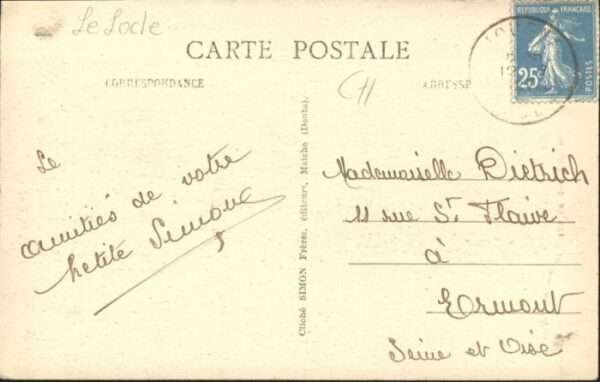 Le Locle
CARTE POSTALE
CORRESPONDANCE
CH
ADRESSE
RÉPUBLIQUE FRANÇAISE
25c
POSTES
Le
amitiés de votre
petite Simone
Cliché SIMON Frères, éditeurs, Maiche (Doubs).
Mademoiselle Dietrich
11 rue St Flaive
à
Ermont
Seine et Oise